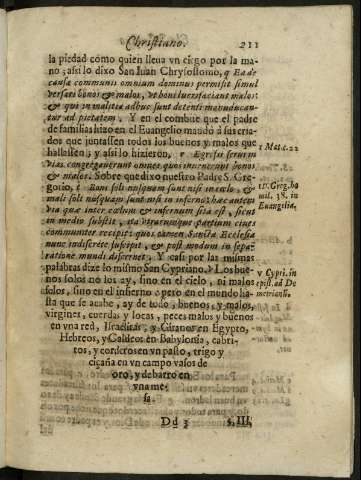 Christiano. 211
la piedad como quien lleua vn ciego por la ma
no; assi lo dixo San Iuan Chrysostomo, q Ea de
causa communis omnium dominus permisit simul
versari bonos & malos, vt boni luxesfaciant malos
& qui in malitia adhuc sunt detenti manuducan-
tur ad pietatem. Y en el combite que el padre
de familias hizo en el Euangelio mandò à sus cria-
dos que juntassen todos los buenos y malos que
hallassen; y assi lo hizieron, r Egressi serui in
vias congregauerunt omnes quos inuenerunt bonos
& malos. Sobre que dixo nuestro Padre S. Gre-
gorio, t Boni soli nusquam sunt nisi in cœlo, &
mali soli nusquam sunt nisi in inferno; hæc autem
vita quæ inter cœlum & infernum sita est, sicut
in medio subsistit, ita vtrarumque partium ciues
communiter recipit; quos tamen Sancta Ecclesia
nunc indiscretè suscipit, & post modum in sepa-
ratione mundi discernet. Y casi por las mismas
palabras dize lo mismo San Cypriano. v Los bue-
nos solos no los ay, sino en el cielo, ni malos
solos, sino en el infierno: pero en el mundo ha-
sta que se acabe, ay de todo, buenos, y malos,
virgines, cuerdas y locas, peces malos y buenos
en vna red, Israëlitas, y Gitanos en Egypto,
Hebreos, y Caldeos en Babylonia, cabri-
tos, y corderos en vn pasto, trigo y
cizaña en vn campo vasos de
oro, y de barro en
vna me-
sa
Dd 3 s. III.
r Mat. c. 22
t S. Greg. ho
mil. 38. in
Euangelia.
v Cypri. in
epist. ad De
metrianũ.